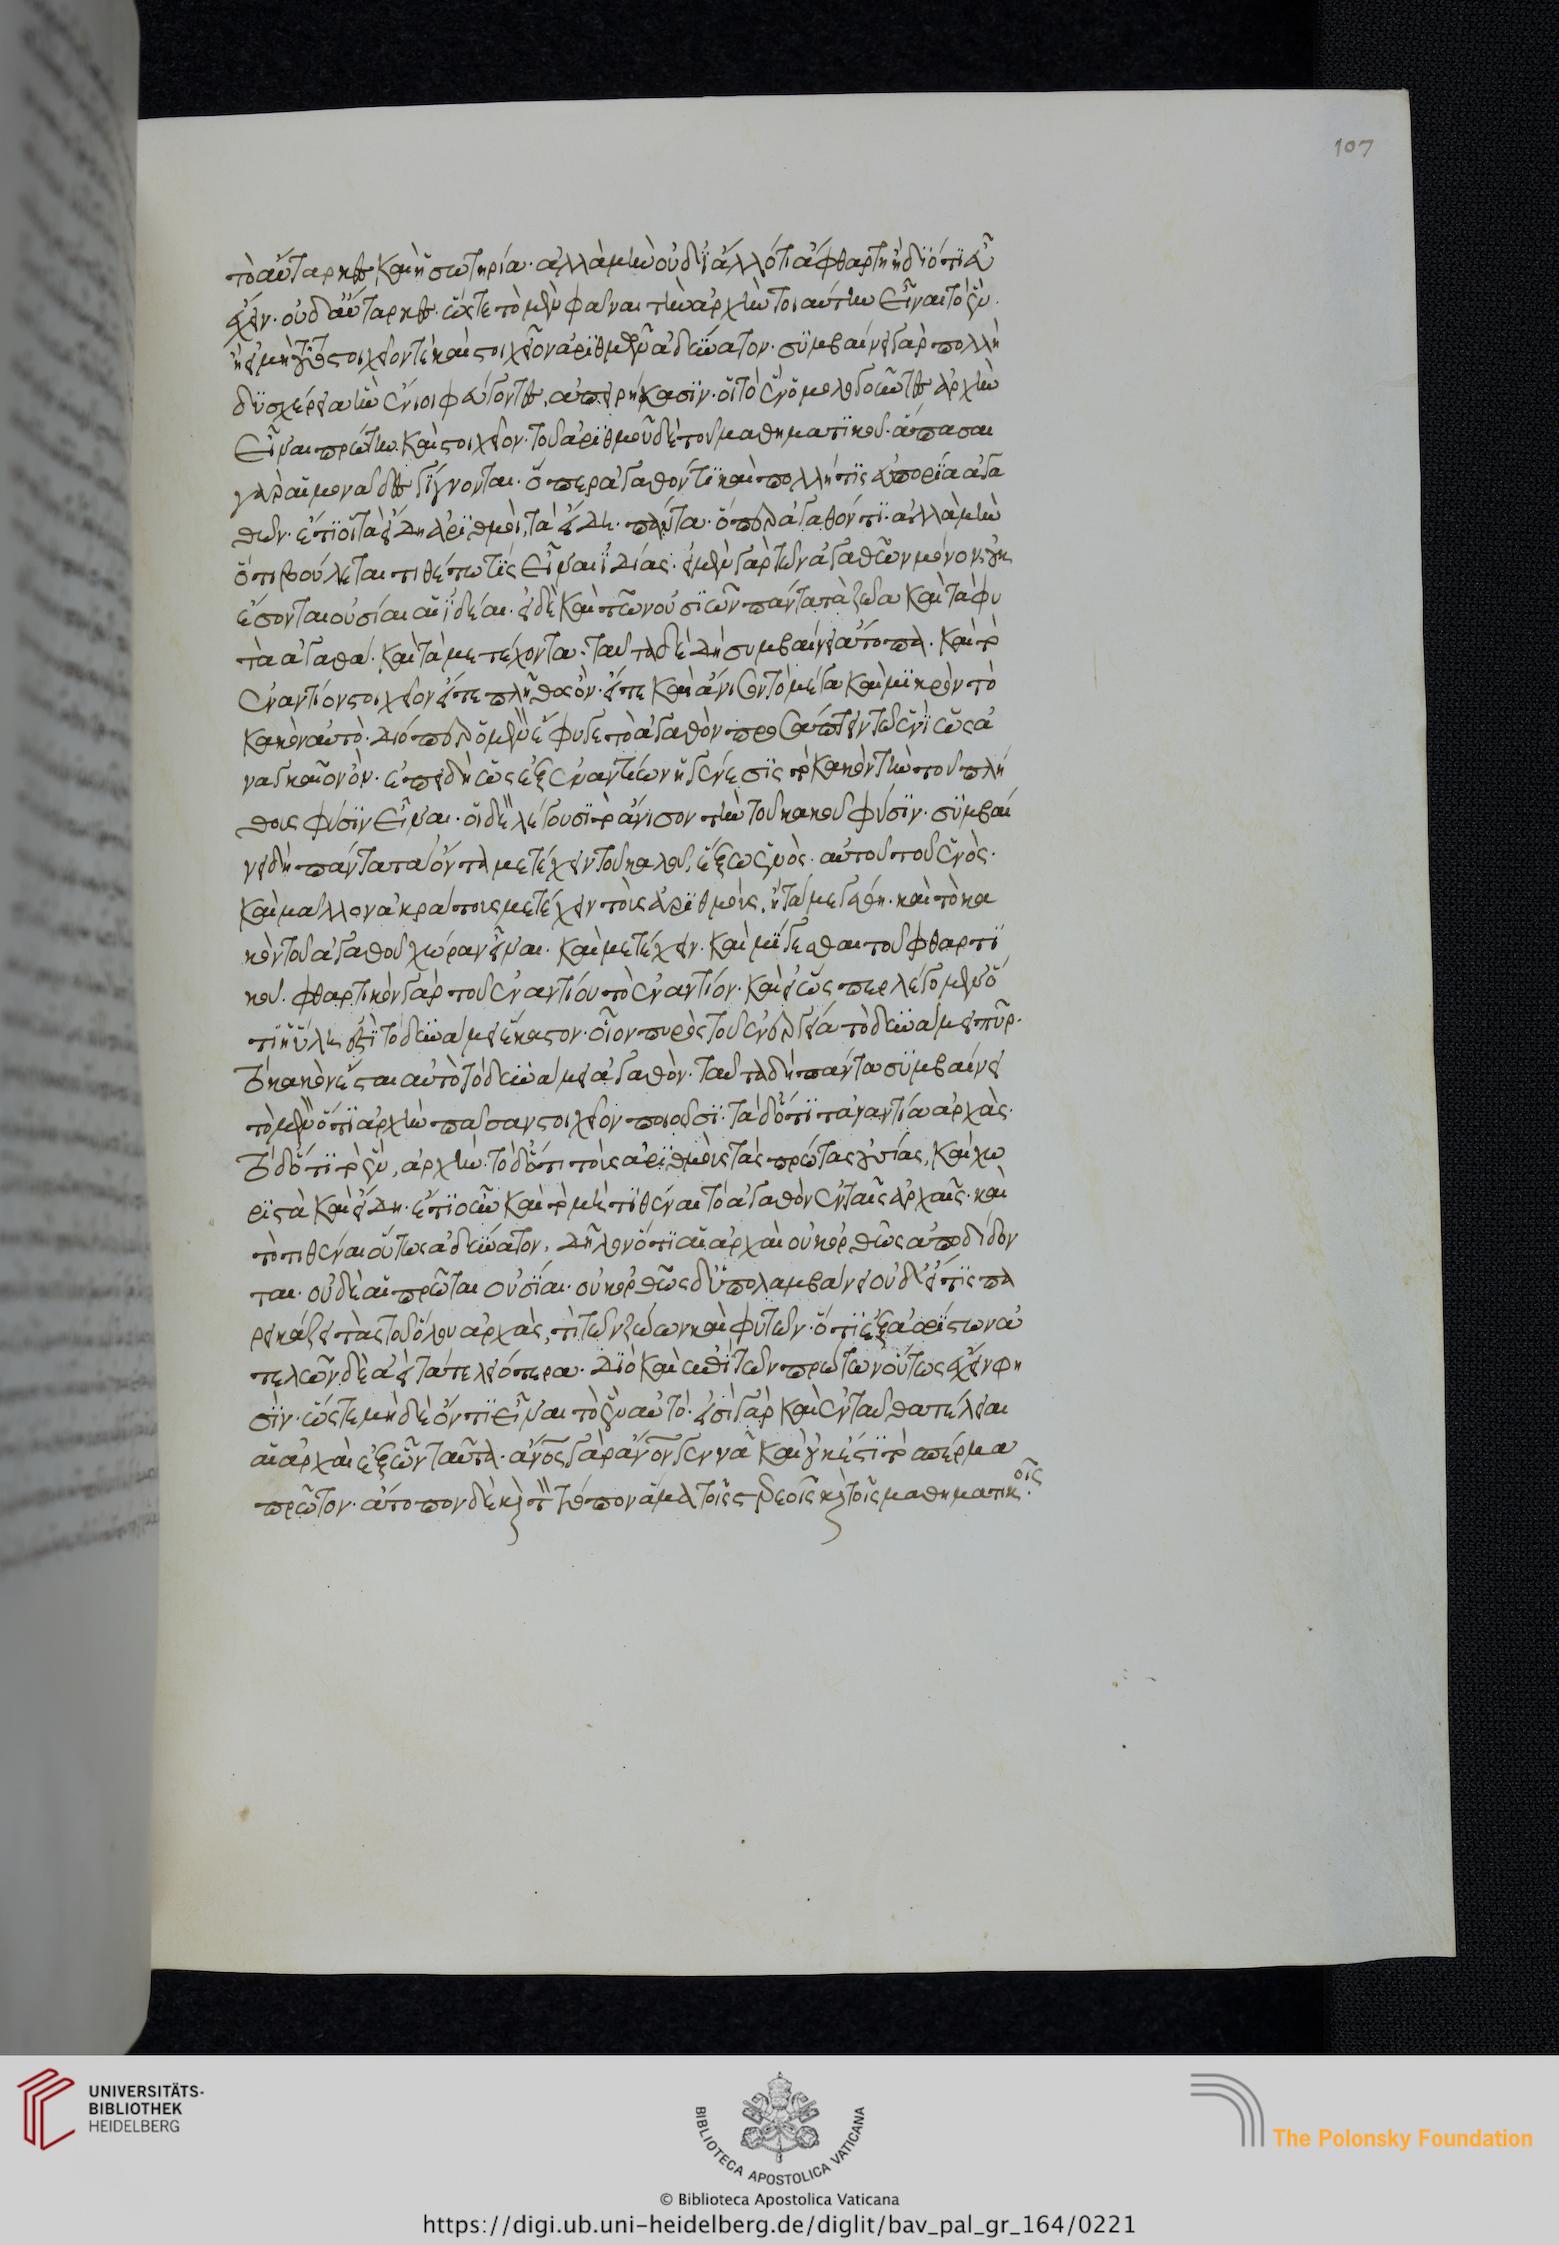 τὸ αὔταρκες καὶ ἡ σωτηρία· ἀλλὰ μὴν οὐ δι' ἄλλό τι ἄφθαρτη ἢ διότι εὖ
ἔχειν· οὐδ' αὔταρκες· ὥστε τὸ μὲν φάναι τὴν ἀρχὴν τοιαύτην εἶναι τὸ ἕν·
ἢ εἰ μὴ τοῦτο στοιχεῖον τε καὶ στοιχεῖον ἀριθμῶν ἀδύνατον· συμβαίνει γὰρ πολλὴ
δυσχέρεια ἣν ἔνιοι φεύγοντες, ἀπειρήκασιν· οἱ τὸ ἓν ὁμολογοῦντες ἀρχὴν
εἶναι πρώτην καὶ στοιχεῖον· τοῦ ἀριθμοῦ δὲ τοῦ μαθηματικοῦ· ἅπασαι
γὰρ αἱ μονάδες γίγνονται· ὅπερ ἀγαθόν τι καὶ πολλή τις ἀπορία ἀγα
θῶν· ἔτι εἰ τὰ εἴδη ἀριθμοὶ, τὰ εἴδη πάντα· ὅπερ ἀγαθόν τι· ἀλλὰ μὴν
ὅτι βούλεται τιθέτω τις εἶναι ἰδέας· εἰ μὲν γὰρ τῶν ἀγαθῶν μόνον οὐκ
ἔσονται οὐσίαι αἱ ἰδέαι· εἰ δὲ καὶ τῶν οὐσιῶν πάντα τὰ ζῶα καὶ τὰ φυ
τὰ ἀγαθὰ· καὶ τὰ μετέχοντα· ταῦτά δὲ δὴ συμβαίνει ἄτοπα· καὶ τὸ
ἐναντίον στοιχεῖον εἴτε πλῆθος ὂν· εἴτε καὶ ἄνισον τὸ μέγα καὶ μικρὸν τὸ
κακὸν αὐτὸ· διόπερ ὁ μὲν ἔφυγε τὸ ἀγαθὸν προσάπτειν τῶ ἑνὶ ὡς ἀ
ναγκαῖον ὂν· ἐπειδὴ ὡς ἐξ ἐναντίων ἡ γένεσις τὸ κακὸν τὴν τοῦ πλή
θους φύσιν εἶναι· οἱ δὲ λέγουσι τὸ ἄνισον τὴν τοῦ κακοῦ φύσιν· συμβαί
νει δὴ πάντα τὰ ὄντα μετέχειν τοῦ κακοῦ, ἔξω ἑνὸς· αὐτοῦ τοῦ ἑνὸς·
καὶ μᾶλλον ἀκράτοις μετέχειν τοὺς ἀριθμοὺς, ἢ τὰ μεγέθη· καὶ τὸ κα
κὸν τοῦ ἀγαθοῦ χώραν εἶναι· καὶ μετέχειν· καὶ ὀρέγεσθαι τοῦ φθαρτι
κοῦ· φθαρτικὸν γὰρ τοῦ ἐναντίου τὸ ἐναντίον· καὶ εἰ ὥσπερ λέγομεν ὅ
τι ἡ ὕλη ἐστὶ τὸ δυνάμει ἕκαστον· οἷον πυρὸς τοῦ ἐνεργείᾳ τὸ δυνάμει πῦρ·
τὸ κακὸν ἔσται αὐτὸ τὸ δυνάμει ἀγαθὸν· ταῦτα δὴ πάντα συμβαίνει
τὸ μὲν ὅτι ἀρχὴν πᾶσαν στοιχεῖον ποιοῦσι· τὸ δ' ὅτι τἀναντία ἀρχὰς·
τὸ δ' ὅτι τὸ ἓν, ἀρχὴν· τὸ δ' ὅτι τοὺς ἀριθμοὺς τὰς πρώτας οὐσίας, καὶ χω
ριστὰ καὶ εἴδη· εἰ τι οὖν καὶ τὸ μὴ τιθέναι τὸ ἀγαθὸν ἐν ταῖς ἀρχαῖς· καὶ
τὸ τιθέναι οὕτως ἀδύνατον, δῆλον ὅτι αἱ ἀρχαὶ οὐκ ὀρθῶς ἀποδίδον
ται· οὐδὲ αἱ πρῶται οὐσίαι· οὐκ ὀρθῶς δ' ὑπολαμβάνει οὐδ' εἴ τις πα
ρεικάζει τὰς τοῦ ὅλου ἀρχὰς, τῆ τῶν ζώων καὶ φυτῶν· ὅτι ἐξ ἀορίστων ἀ
τελῶν δὲ ἀεὶ τὰ τελειότερα· διὸ καὶ ἐπὶ τῶν πρώτων οὕτως ἔχειν φη
σὶν· ὥστε μηδὲ ὄν τι εἶναι τὸ ἓν αὐτό· εἰσὶ γὰρ καὶ ἐνταῦθα τέλειαι
αἱ ἀρχαὶ ἐξ ὧν ταῦτα· ἄνος γὰρ ἄνον γεννᾶ καὶ οὐκ ἔστι τὸ σπέρμα
πρῶτον· ἄτοπον δὲ καὶ τὸ τόπον ἅμα τοῖς στερεοῖς καὶ τοῖς μαθηματικοῖς·
107
UNIVERSITÄTS-
BIBLIOTHEK
HEIDELBERG
BIBLIOTECA APOSTOLICA VATICANA
The Polonsky Foundation
© Biblioteca Apostolica Vaticana
https://digi.ub.uni-heidelberg.de/diglit/bav_pal_gr_164/0221